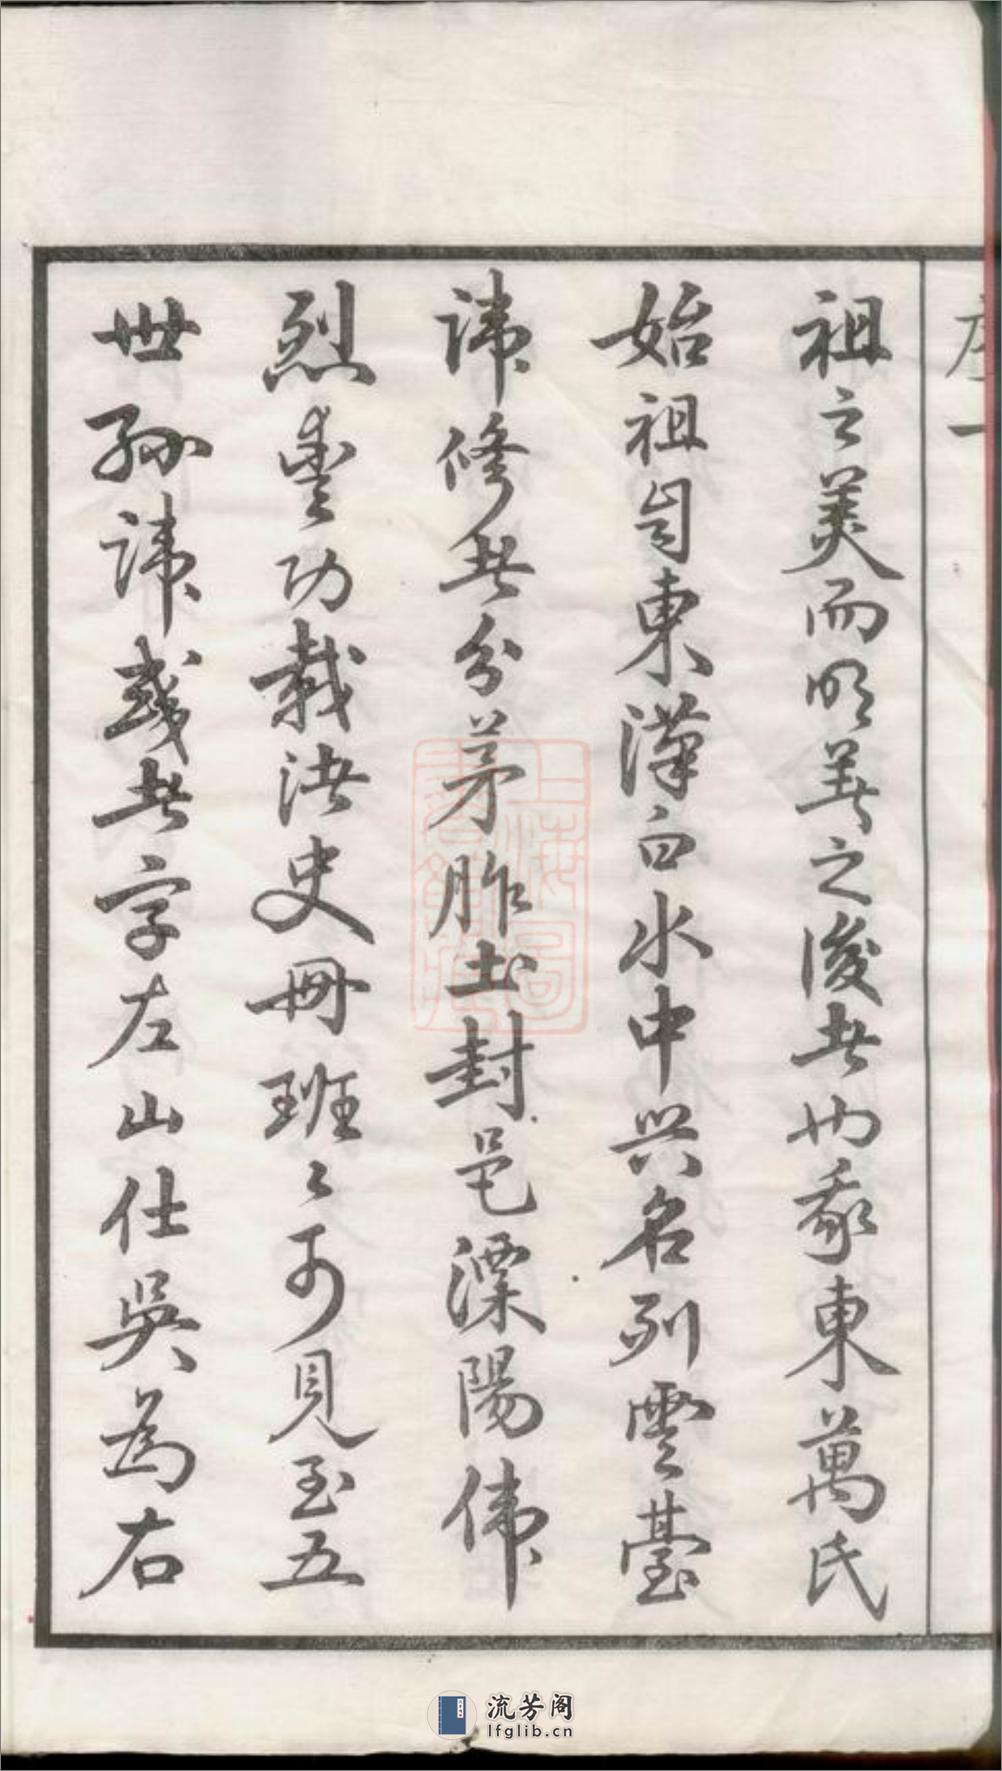 序一
祖之美而明著之後者也我東萬氏
始祖自東漢白水中興名列雲臺
諱修者分茅胙土封邑溧陽偉
烈豐功載諸史冊班〻可見至五
世孫諱彧者字左山仕吳為右
上海圖書館藏
流芳阁
lfglib.cn